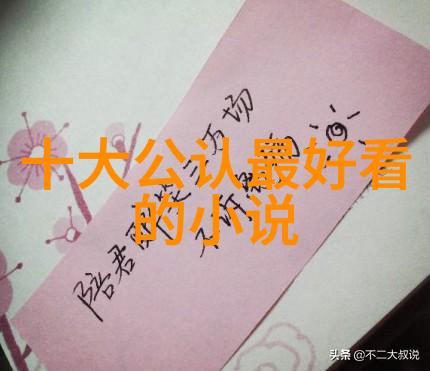 十大公认最好看
的小说
陪君醉笑三万场
不
头条 @不二大叔说